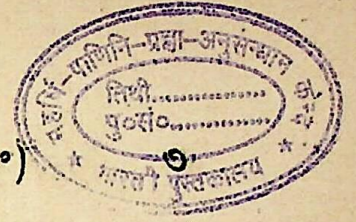 महर्षि-पाणिनि-प्रज्ञा-अनुसन्धान केन्द्र
तिथी..................
पु०सं०..................
७
०)
* भारती पुस्तकालय *